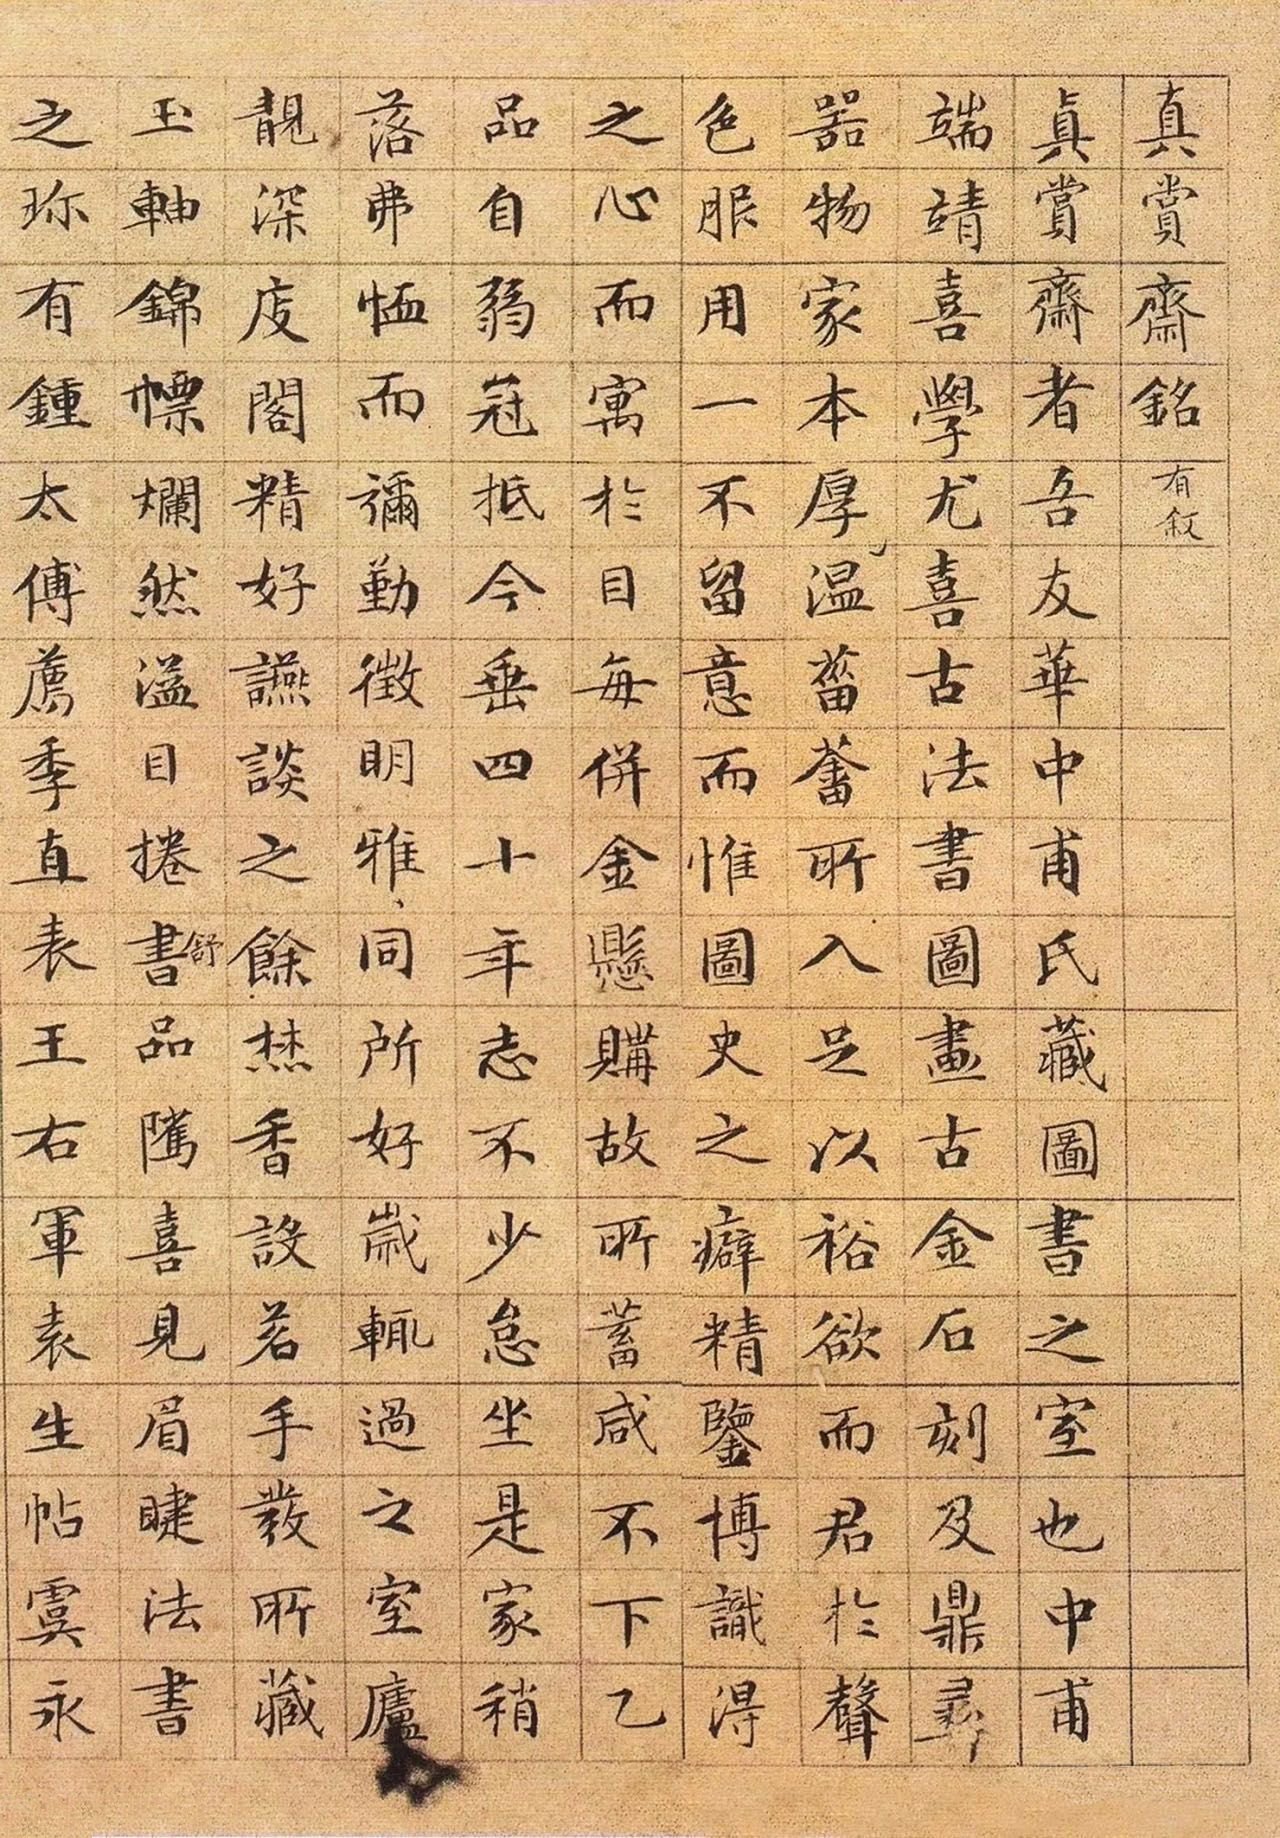 真賞齋銘有敘
真賞齋者吾友華中甫氏藏圖書之室也中甫
端靖喜學尤喜古法書圖畫古金石刻及鼎彝
噐物家本厚温菑蓄所入足以裕欲而君於聲
色服用一不留意而惟圖史之癖精鑒博識得
之心而寓於目每併金懸購故所蓄咸不下乙
品自弱冠抵今垂四十年志不少怠坐是家稍
落弗恤而彌勤徵明雅同所好歲輒過之室廬
靚深庋閣精好讌談之餘焚香設茗手發所藏
玉軸錦幖爛然溢目捲舒書品隲喜見眉睫法書
之珎有鍾太傅薦季直表王右軍袁生帖虞永